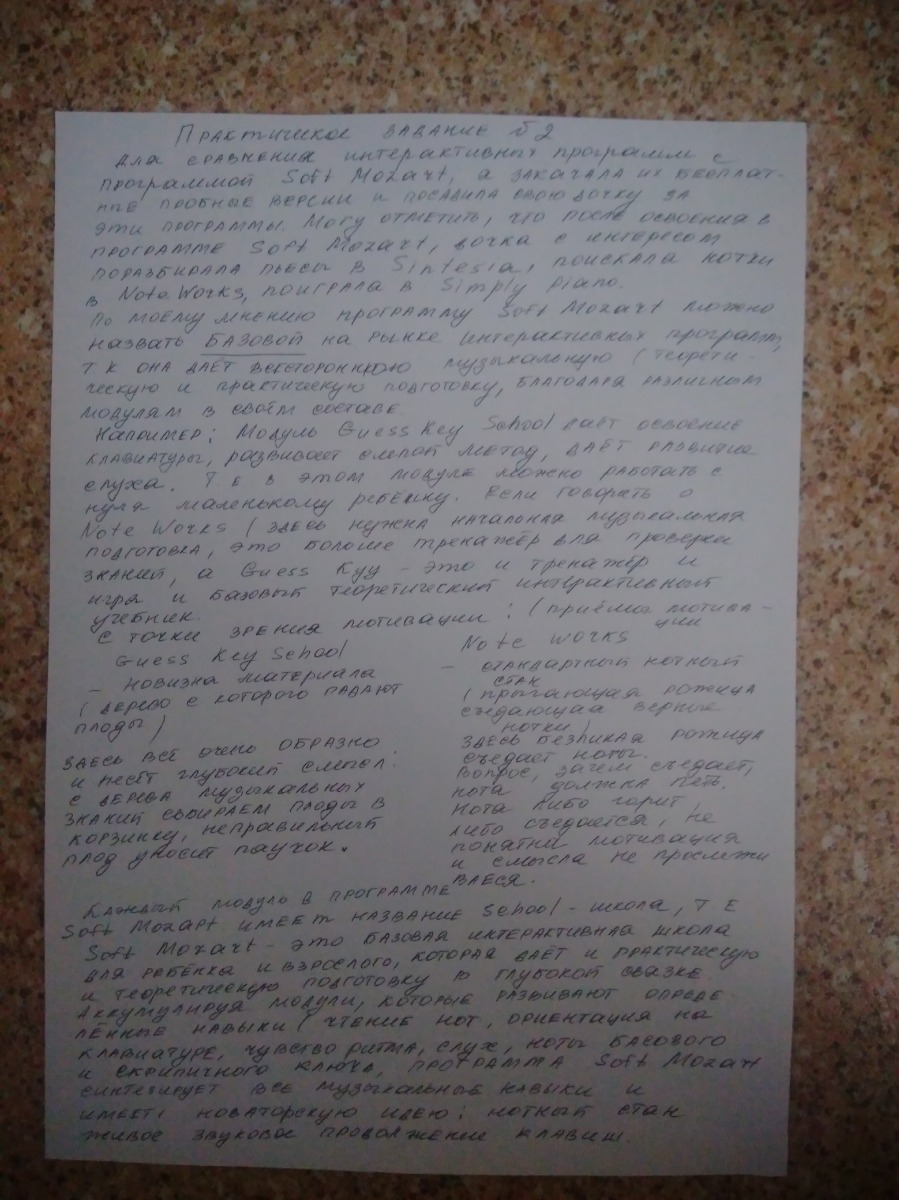 Практическое задание №2
Для сравнения интерактивных программ с
программой Soft Mozart, я закачала их бесплат-
ные пробные версии и посадила свою дочку за
эти программы. Могу отметить, что после освоения в
программе Soft Mozart, дочка с интересом
поразбирала пьесы в Sintesia, поискала нотки
в Note Works, поиграла в Simply piano.
По моему мнению программу Soft Mozart можно
назвать БАЗОВОЙ на рынке интерактивных программ,
т к она даёт всестороннюю музыкальную (теорети-
ческую и практическую подготовку, благодаря различным
модулям в своём составе.
Например: Модуль Guess Key School даёт освоение
клавиатуры, развивает слепой метод, даёт развитие
слуха. Т.е в этом модуле можно работать с
нуля маленькому ребёнку. Если говорить о
Note Works (здесь нужна начальная музыкальная
подготовка, это больше тренажёр для проверки
знаний, а Guess Куу - это и тренажёр и
игра и базовый теоретический интерактивный
учебник.
С точки зрения мотивации: (приёмы мотива-
ции
Guess Key School
- новизна материала
(дерево с которого падают
плоды)
Здесь всё очень образно
и несёт глубокий смысл:
с дерева музыкальных
знаний собираем плоды в
корзинку, неправильный
плод уносит паучок.
Note works
- стандартный нотный
стан
(прыгающая рожица
съедающая верные
нотки)
Здесь безликая рожица
съедает ноты.
Вопрос, зачем съедает,
нота должна петь.
Нота либо горит,
либо съедается, не
понятна мотивация
и смысла не прослежи
ваеся.
Каждый модуль в программе
Soft Mozart имеет название School - школа, т е
Soft Mozart - это базовая интерактивная школа
для ребёнка и взрослого, которая даёт и практическую
и теоретическую подготовку в глубокой связке
Аккумулируя модули, которые развивают опреде
лённые навыки (чтение нот, ориентация на
клавиатуре, чувство ритма, слух, ноты басового
и скрипичного ключа, программа Soft Mozart
синтезирует все музыкальные навыки и
имеет новаторскую идею: нотный стан
живое звуковое продолжение клавиш.